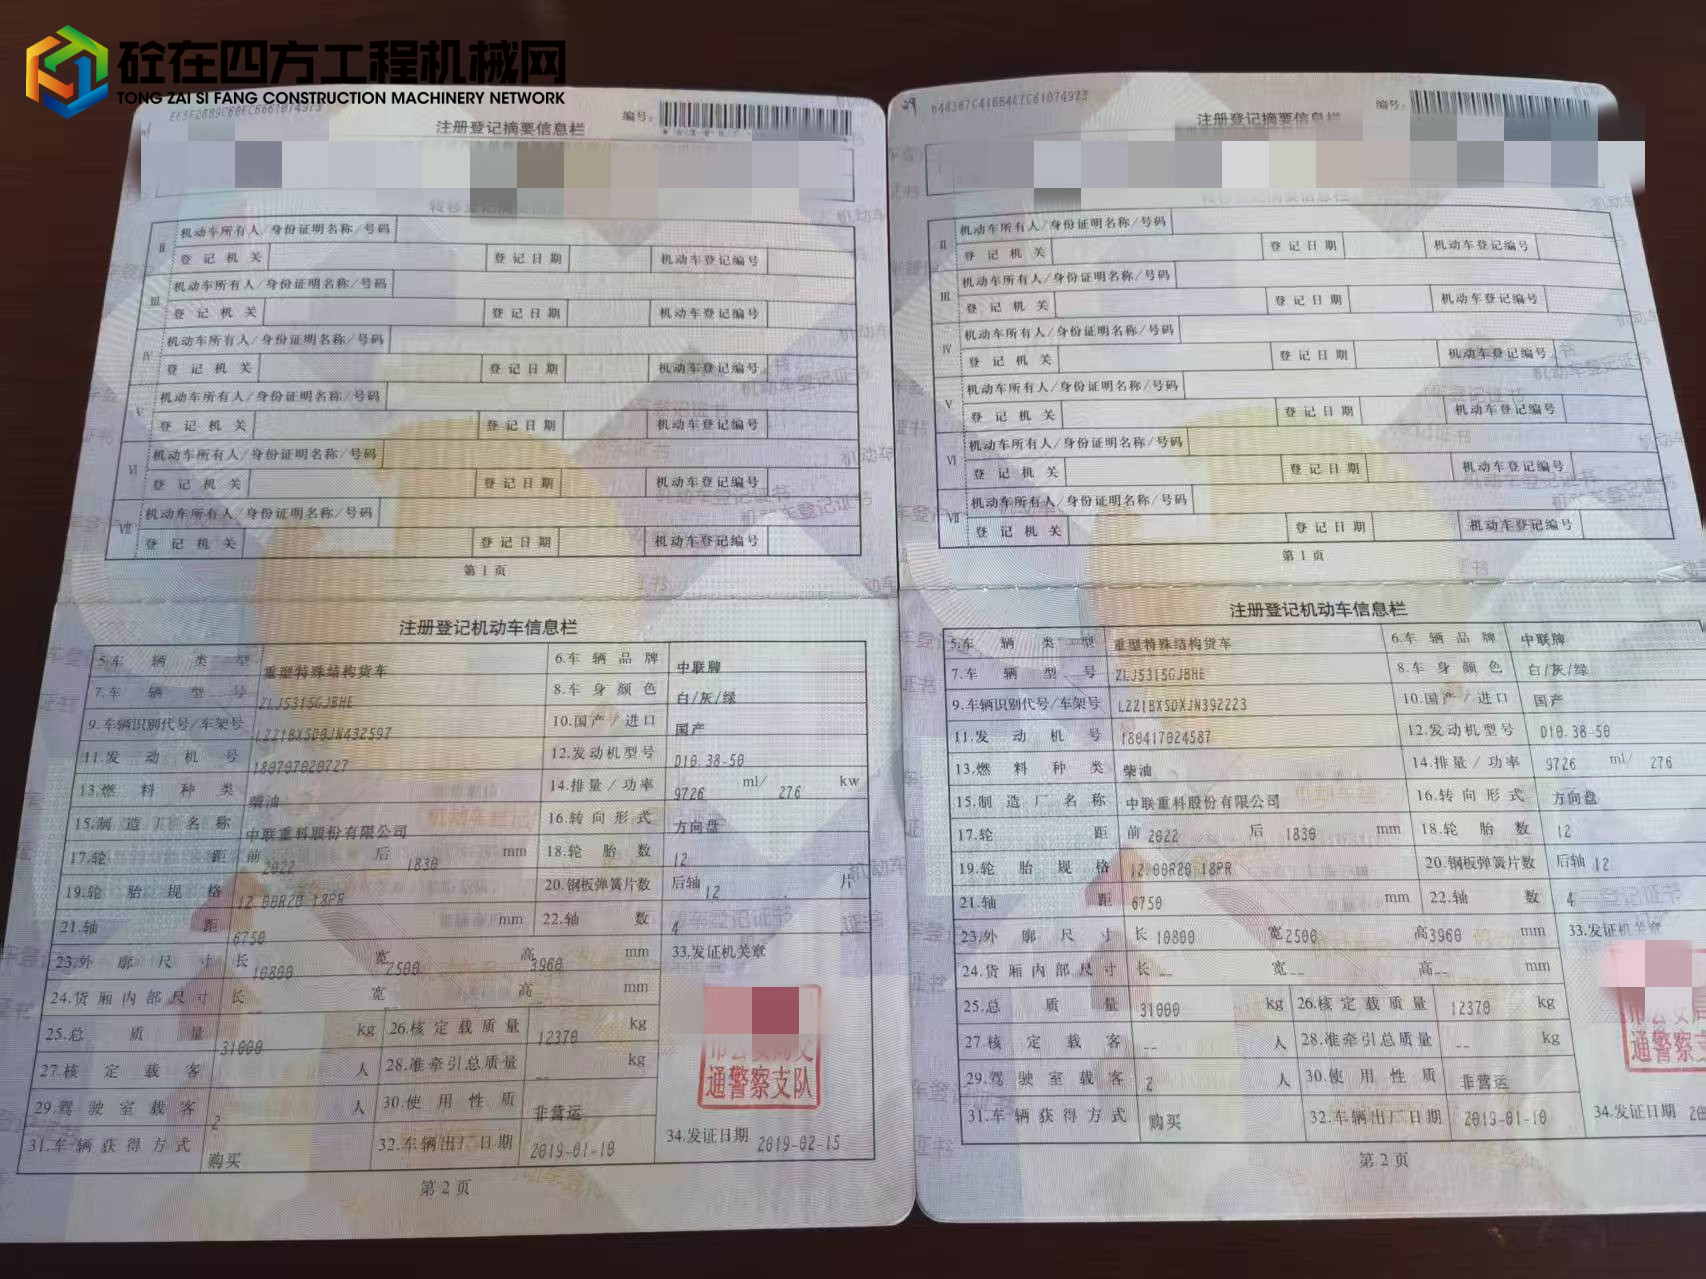 砼在四方工程机械网
TONG ZAI SI FANG CONSTRUCTION MACHINERY NETWORK
编号:
注册登记摘要信息栏
转移登记摘要信息栏
II 机动车所有人/身份证明名称/号码
登记机关 登记日期 机动车登记编号
III 机动车所有人/身份证明名称/号码
登记机关 登记日期 机动车登记编号
IV 机动车所有人/身份证明名称/号码
登记机关 登记日期 机动车登记编号
V 机动车所有人/身份证明名称/号码
登记机关 登记日期 机动车登记编号
VI 机动车所有人/身份证明名称/号码
登记机关 登记日期 机动车登记编号
VII 机动车所有人/身份证明名称/号码
登记机关 登记日期 机动车登记编号
第1页
注册登记机动车信息栏
5.车辆类型 重型特殊结构货车 6.车辆品牌 中联牌
7.车辆型号 ZLJ5315GJBHE 8.车身颜色 白/灰/绿
9.车辆识别代号/车架号 10.国产/进口 国产
11.发动机号 180707020727 12.发动机型号 D10.38-50
13.燃料种类 柴油 14.排量/功率 9726 ml/ 276 kw
15.制造厂名称 中联重科股份有限公司 16.转向形式 方向盘
17.轮距 前 2022 后 1830 mm 18.轮胎数 12
19.轮胎规格 12.00R20 18PR 20.钢板弹簧片数 后轴 12 片
21.轴距 6750 mm 22.轴数 4
23.外廓尺寸 长 10800 宽 2500 高 3960 mm 33.发证机关章
24.货厢内部尺寸 长 宽 高 -- mm
25.总质量 31000 kg 26.核定载质量 12370 kg
27.核定载客 人 28.准牵引总质量 -- kg
29.驾驶室载客 2 人 30.使用性质 非营运
31.车辆获得方式 购买 32.车辆出厂日期 2019-01-10 34.发证日期 2019-02-15
通警察支队
第2页
648367C41BB4E7C61074973
编号:
注册登记摘要信息栏
转移登记摘要信息栏
II 机动车所有人/身份证明名称/号码
登记机关 登记日期 机动车登记编号
III 机动车所有人/身份证明名称/号码
登记机关 登记日期 机动车登记编号
IV 机动车所有人/身份证明名称/号码
登记机关 登记日期 机动车登记编号
V 机动车所有人/身份证明名称/号码
登记机关 登记日期 机动车登记编号
VI 机动车所有人/身份证明名称/号码
登记机关 登记日期 机动车登记编号
VII 机动车所有人/身份证明名称/号码
登记机关 登记日期 机动车登记编号
第1页
注册登记机动车信息栏
5.车辆类型 重型特殊结构货车 6.车辆品牌 中联牌
7.车辆型号 ZLJ5315GJBHE 8.车身颜色 白/灰/绿
9.车辆识别代号/车架号 LZZ1BXSDXJN392223 10.国产/进口 国产
11.发动机号 180417024587 12.发动机型号 D10.38-50
13.燃料种类 柴油 14.排量/功率 9726 ml/ 276
15.制造厂名称 中联重科股份有限公司 16.转向形式 方向盘
17.轮距 前 2022 后 1830 mm 18.轮胎数 12
19.轮胎规格 12.00R20 18PR 20.钢板弹簧片数 后轴 12
21.轴距 6750 mm 22.轴数 4
23.外廓尺寸 长 10800 宽 2500 高 3960 mm 33.发证机关章
24.货厢内部尺寸 长 -- 宽 -- 高 -- mm
25.总质量 31000 kg 26.核定载质量 12370 kg
27.核定载客 -- 人 28.准牵引总质量 -- kg
29.驾驶室载客 2 人 30.使用性质 非营运
31.车辆获得方式 购买 32.车辆出厂日期 2019-01-10 34.发证日期
通警察支
第2页